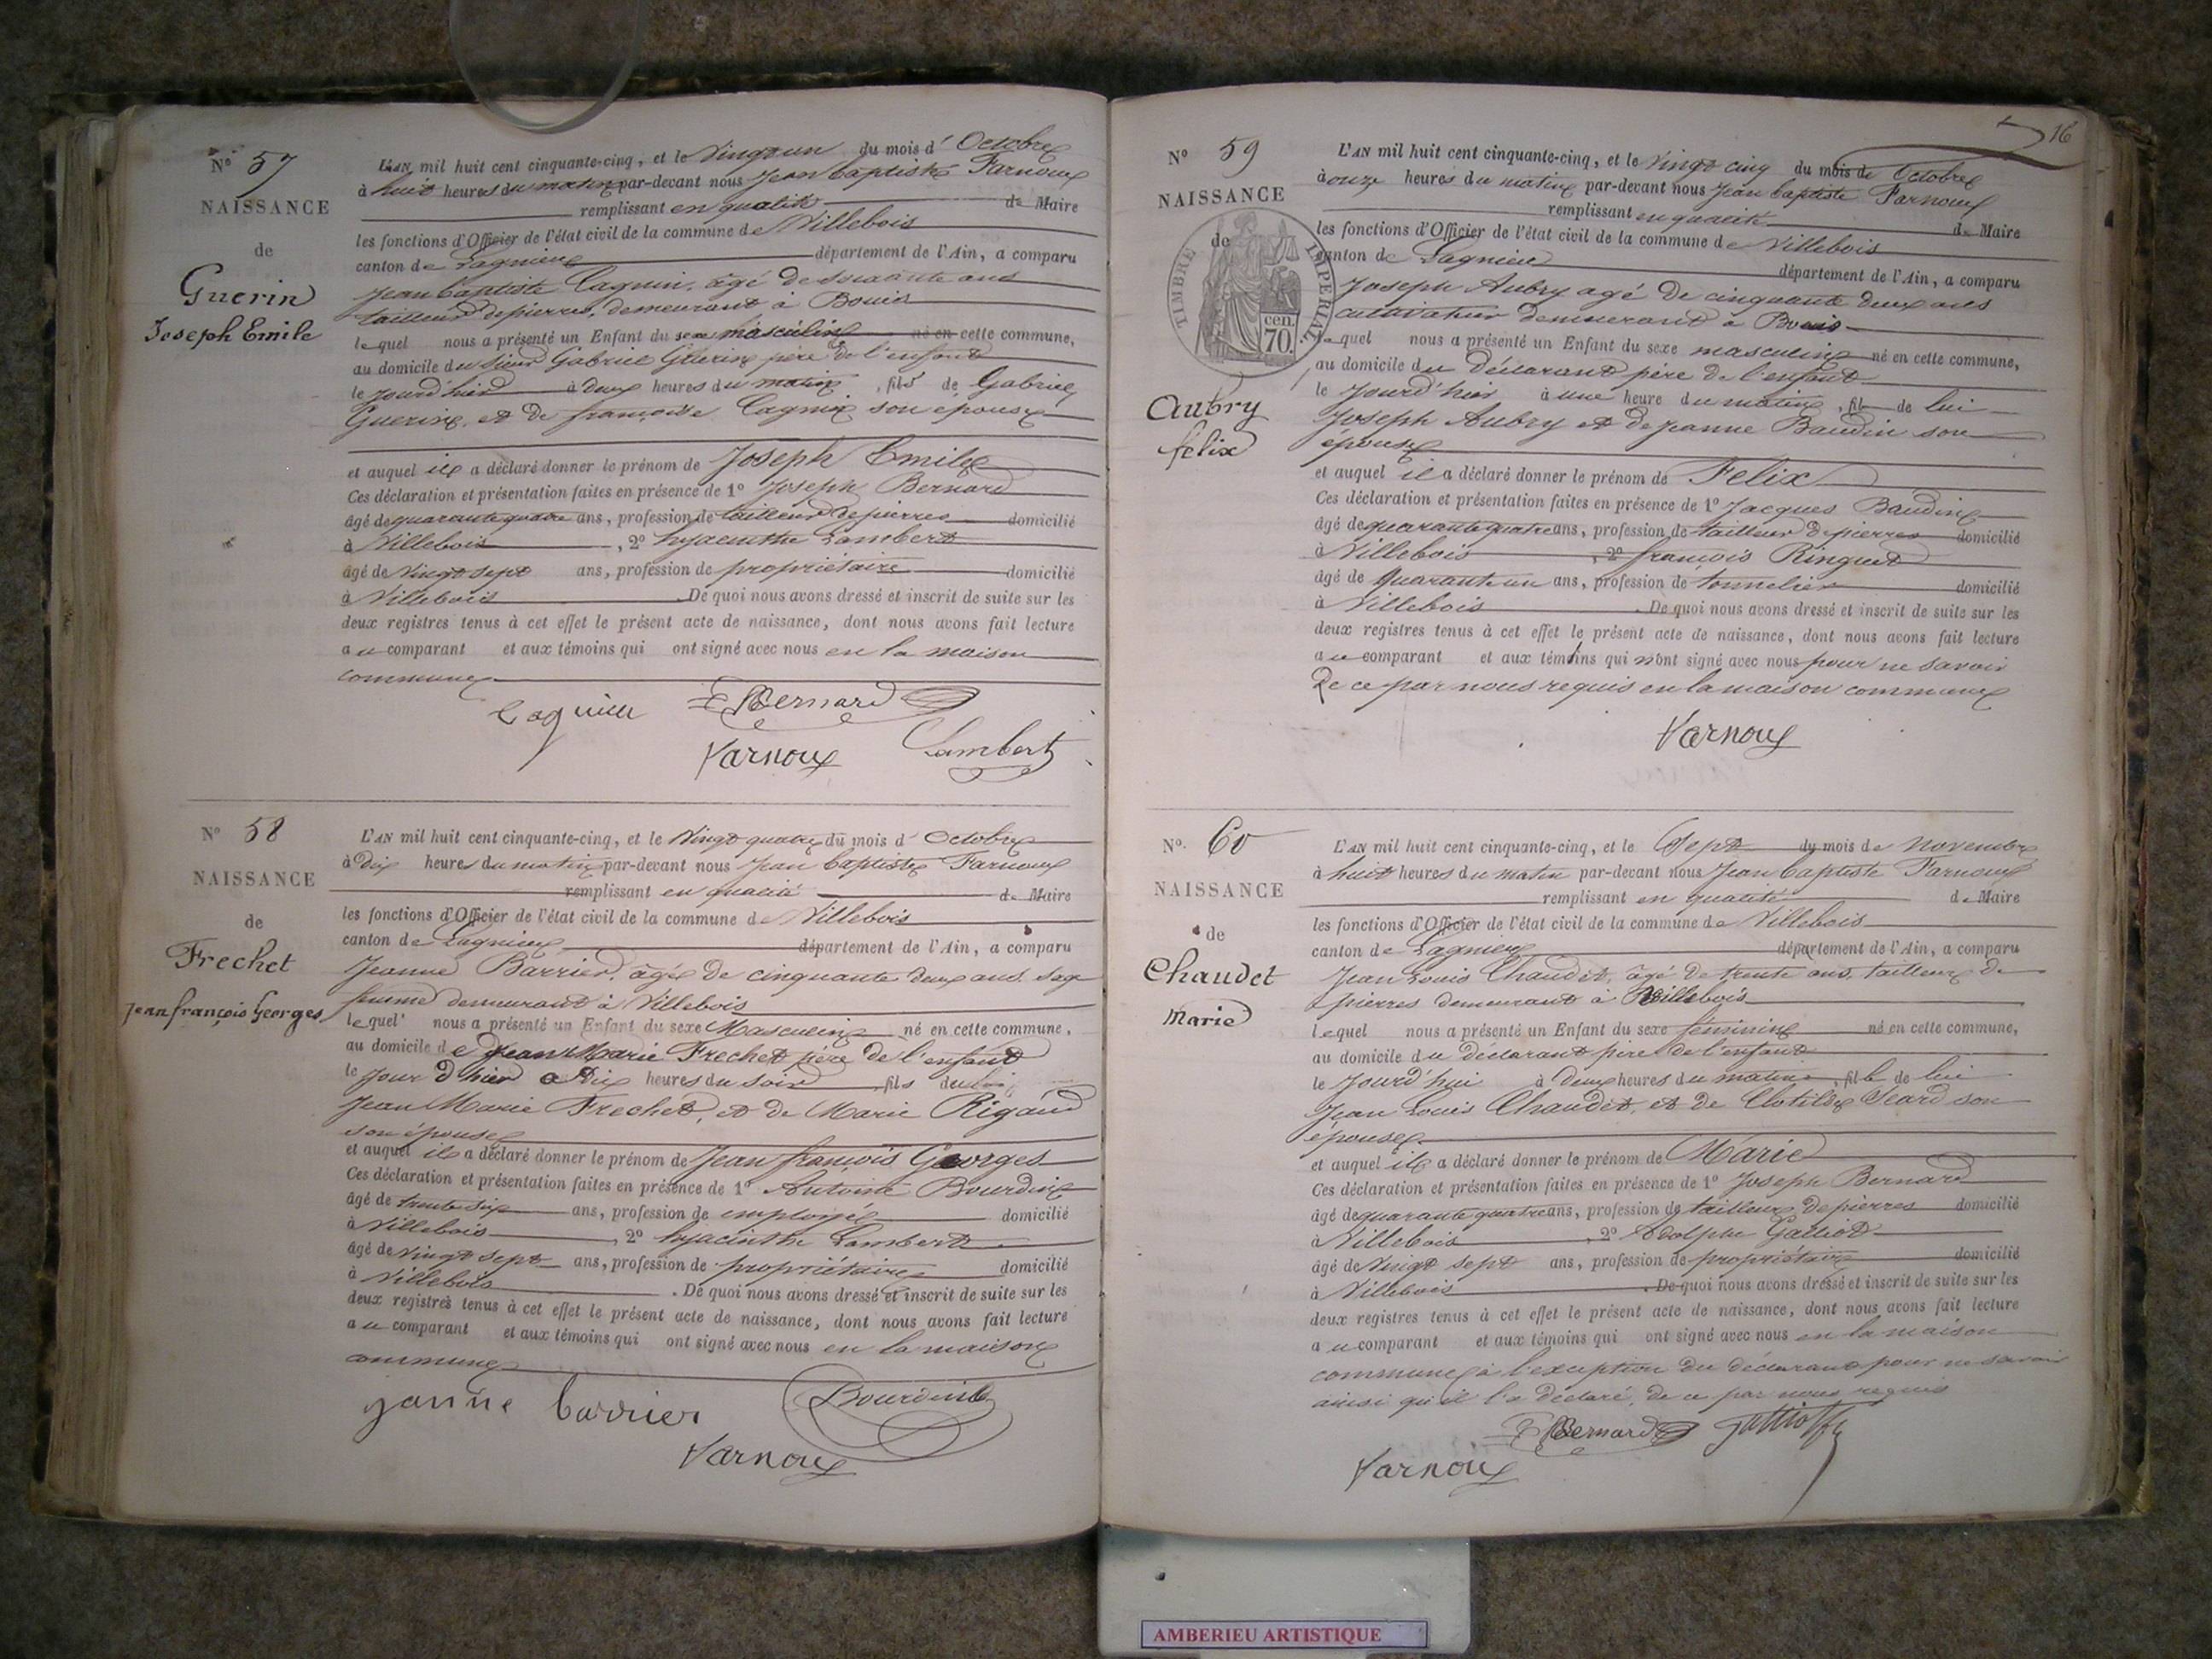 N° 57
NAISSANCE
de
Guerin
Joseph Emile
L'AN mil huit cent cinquante-cinq, et le Vingt un du mois d'Octobre
à huit heures du matin par-devant nous Jean baptiste Farnoux
remplissant en qualité de Maire
les fonctions d'Officier de l'état civil de la commune de Villebois
canton de Lagnieu département de l'Ain, a comparu
Jean baptiste Cagnin, âgé de soixante ans
tailleur de pierres, demeurant à Bouis
lequel nous a présenté un Enfant du sexe masculin né en cette commune,
au domicile du sieur Gabriel Guerin père de l'enfant
le jourd'hier à deux heures du matin, fils de Gabriel
Guerin, et de françoise Cagnin son épouse
et auquel il a déclaré donner le prénom de Joseph Emile
Ces déclaration et présentation faites en présence de 1° Joseph Bernard
âgé de quarante quatre ans, profession de tailleur de pierres domicilié
à Villebois, 2° hyacinthe Lambert
âgé de vingt sept ans, profession de propriétaire domicilié
à Villebois. De quoi nous avons dressé et inscrit de suite sur les
deux registres tenus à cet effet le présent acte de naissance, dont nous avons fait lecture
au comparant et aux témoins qui ont signé avec nous en la maison
commune
Bernard
Varnoux Lambert
N° 58
NAISSANCE
de
Frechet
Jean françois Georges
L'AN mil huit cent cinquante-cinq, et le Vingt quatre du mois d'Octobre
à dix heures du matin par-devant nous Jean baptiste Farnoux
remplissant en qualité de Maire
les fonctions d'Officier de l'état civil de la commune de Villebois
canton de Lagnieu département de l'Ain, a comparu
Jeanne Barrier, âgée de cinquante deux ans sage
femme demeurant à Villebois
lequel nous a présenté un Enfant du sexe Masculin né en cette commune,
au domicile de Jean Marie Frechet père de l'enfant
le jour d'hier à Dix heures du soir, fils de
Jean Marie Frechet, et de Marie Rigaud
son épouse
et auquel il a déclaré donner le prénom de Jean françois Georges
Ces déclaration et présentation faites en présence de 1° Antoine Bourdin
âgé de trente six ans, profession de employé domicilié
à Villebois, 2° hyacinthe Lambert
âgé de vingt sept ans, profession de propriétaire domicilié
à Villebois. De quoi nous avons dressé et inscrit de suite sur les
deux registres tenus à cet effet le présent acte de naissance, dont nous avons fait lecture
au comparant et aux témoins qui ont signé avec nous en la maison
commune
janne barrier Bourdin
Varnoux
16
N° 59
NAISSANCE
de
TIMBRE IMPERIAL
cen. 70.
Aubry
félix
L'AN mil huit cent cinquante-cinq, et le vingt cinq du mois de Octobre
à onze heures du matin par-devant nous Jean baptiste Farnoux
remplissant en qualité de Maire
les fonctions d'Officier de l'état civil de la commune de Villebois
canton de Lagnieu département de l'Ain, a comparu
Joseph Aubry agé de cinquante deux ans
cultivateur demeurant à Bouis
lequel nous a présenté un Enfant du sexe masculin né en cette commune,
au domicile du déclarant père de l'enfant
le jourd'hier à une heure du matin, fils de lui
Joseph Aubry et de jeanne Baudin son
épouse
et auquel il a déclaré donner le prénom de Felix
Ces déclaration et présentation faites en présence de 1° Jacques Baudin
âgé de quarante quatre ans, profession de tailleur de pierres domicilié
à Villebois, 2° françois Ringuet
âgé de quarante un ans, profession de tonnelier domicilié
à Villebois. De quoi nous avons dressé et inscrit de suite sur les
deux registres tenus à cet effet le présent acte de naissance, dont nous avons fait lecture
au comparant et aux témoins qui n'ont signé avec nous pour ne savoir
De ce par nous requis en la maison commune
Varnoux
N°. 60
NAISSANCE
de
Chaudet
Marie
L'AN mil huit cent cinquante-cinq, et le Sept du mois de novembre
à huit heures du matin par-devant nous Jean baptiste Farnoux
remplissant en qualité de Maire
les fonctions d'Officier de l'état civil de la commune de Villebois
canton de Lagnieu département de l'Ain, a comparu
Jean Louis Chaudet, âgé de trente ans, tailleur de
pierres demeurant à Villebois
lequel nous a présenté un Enfant du sexe féminin né en cette commune,
au domicile du déclarant père de l'enfant
le jourd'hui à deux heures du matin, fille de lui
Jean Louis Chaudet, et de Clotilde Séard son
épouse
et auquel il a déclaré donner le prénom de Marie
Ces déclaration et présentation faites en présence de 1° Joseph Bernard
âgé de quarante quatre ans, profession de tailleur de pierres domicilié
à Villebois, 2° Adolphe Galliot
âgé de vingt sept ans, profession de propriétaire domicilié
à Villebois. De quoi nous avons dressé et inscrit de suite sur les
deux registres tenus à cet effet le présent acte de naissance, dont nous avons fait lecture
au comparant et aux témoins qui ont signé avec nous en la maison
commune à l'exception du déclarant pour ne savoir
ainsi qu'il l'a déclaré, de ce par nous requis
Bernard
Varnoux
AMBERIEU ARTISTIQUE